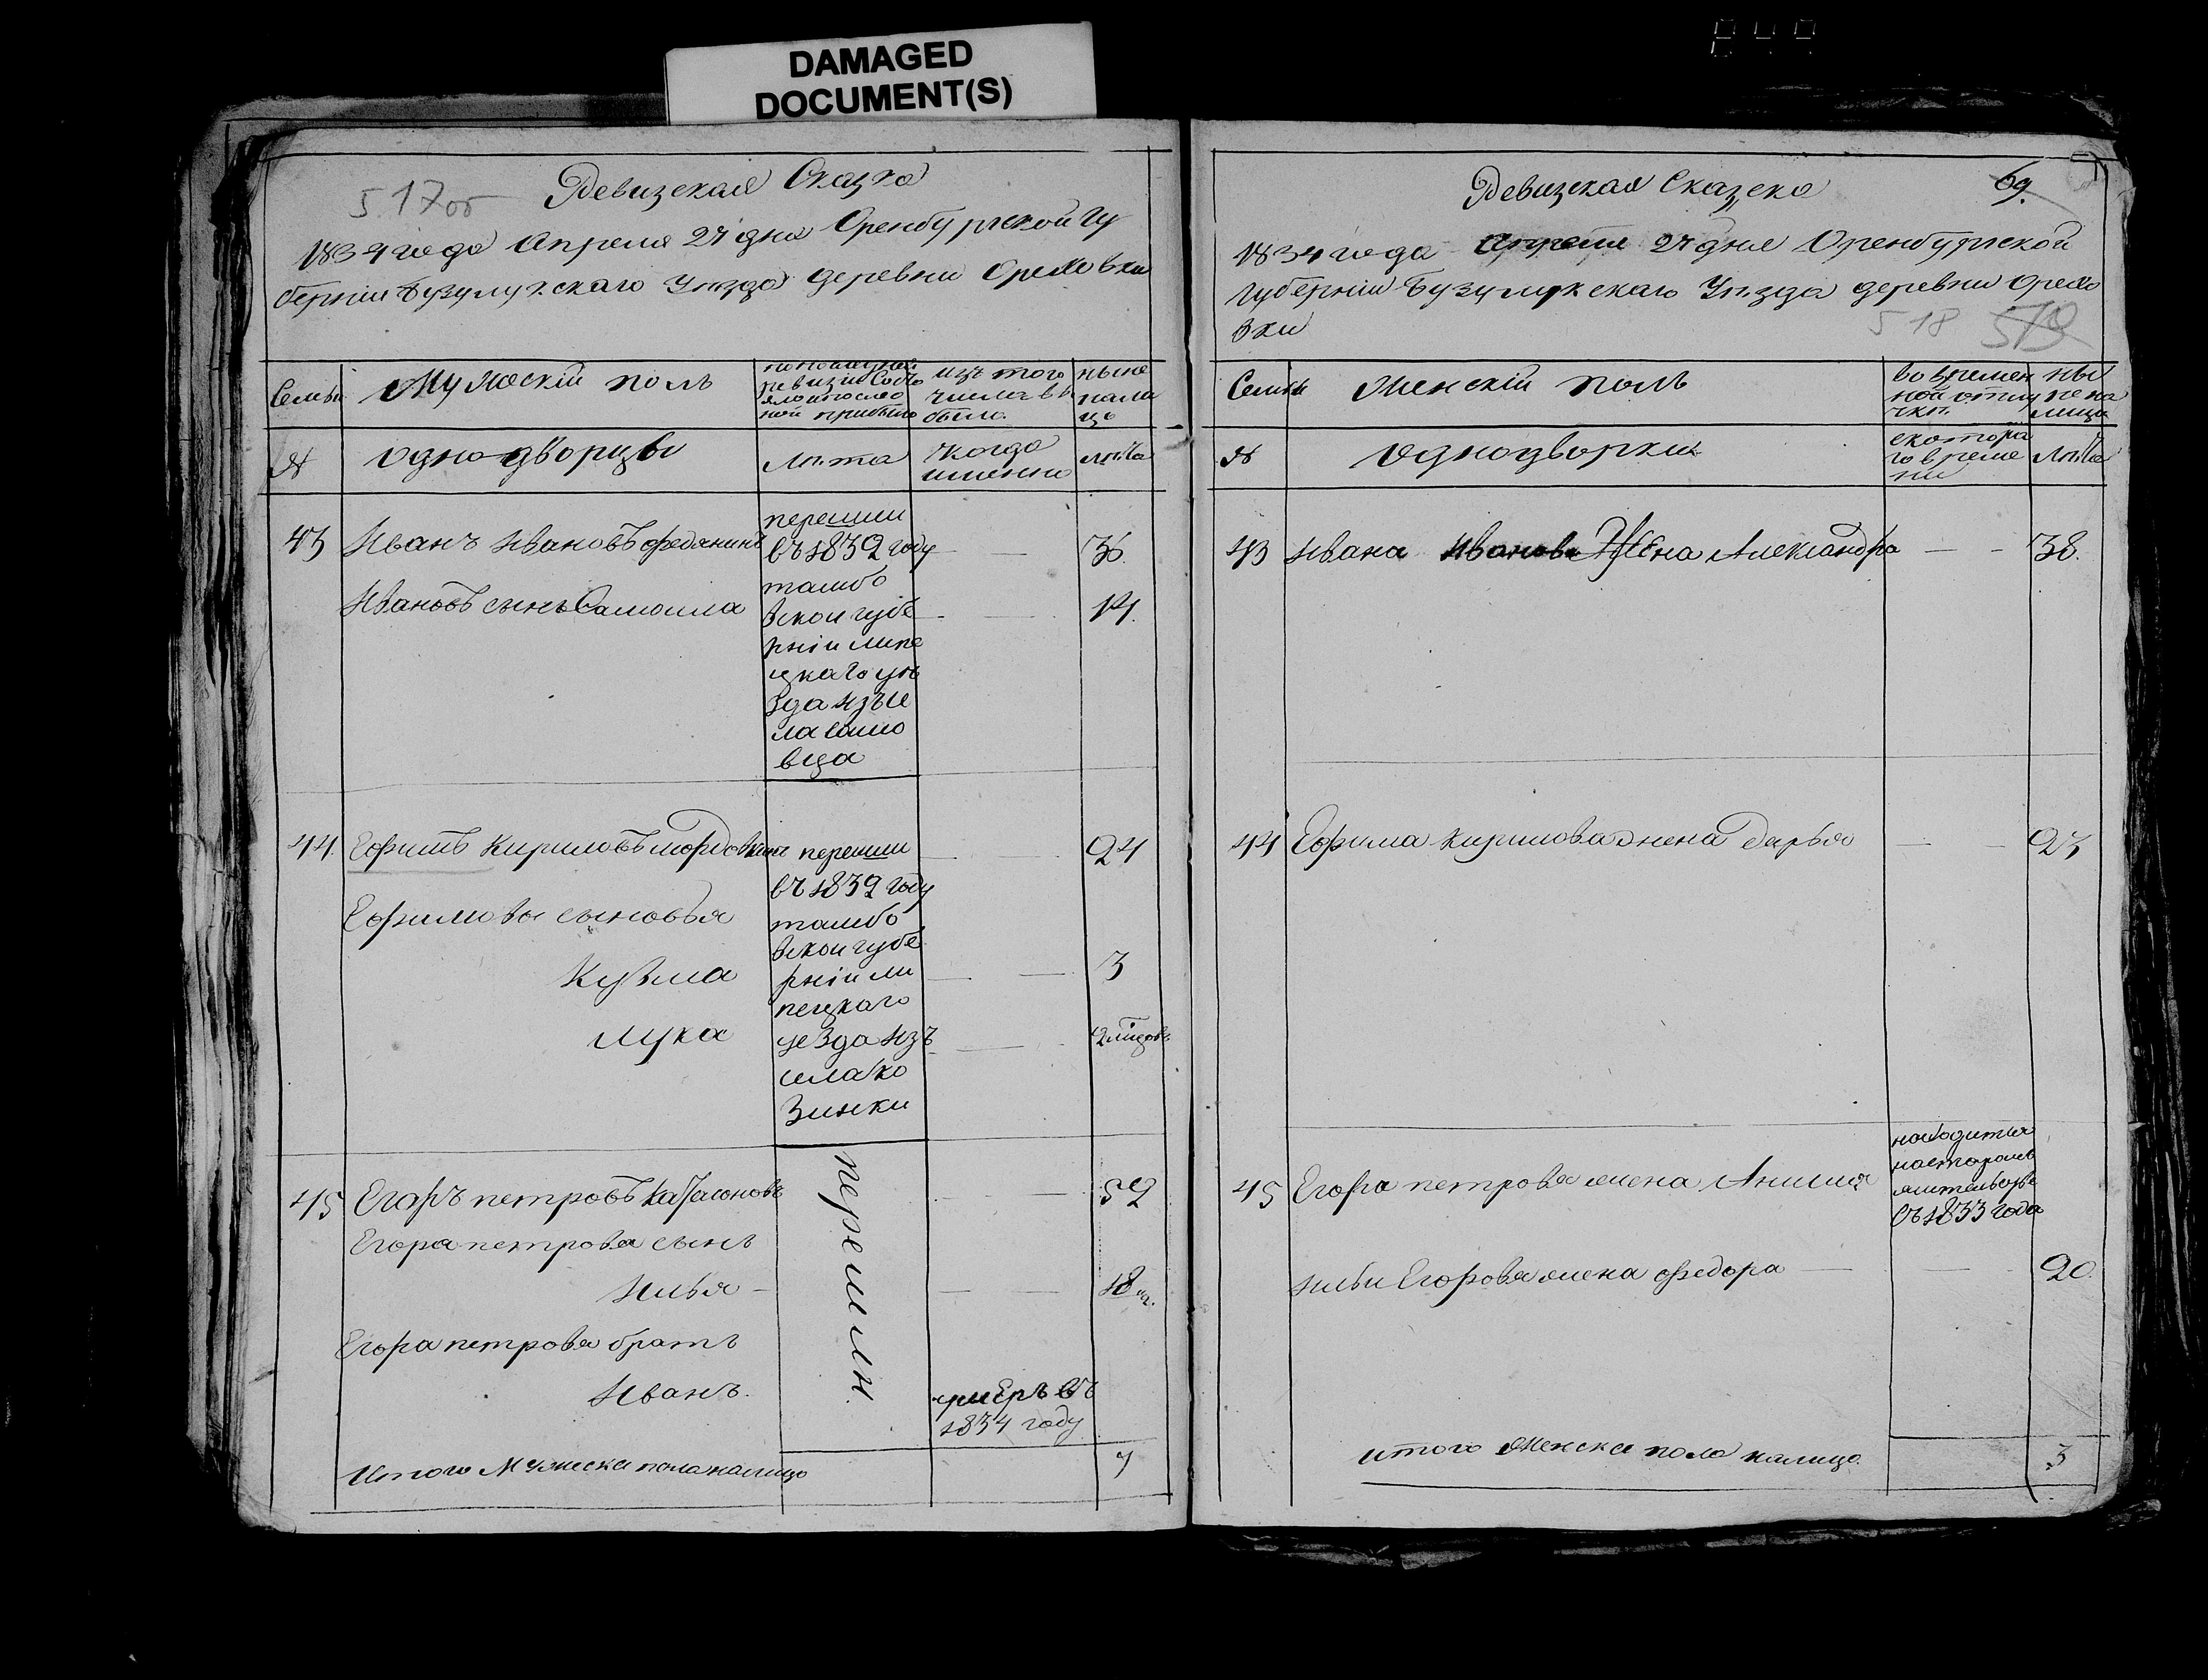 DAMAGED
DOCUMENT(S)
517об
Ревизская Сказка
1834 года Апреля 27 дня Оренбургской Гу
берніи Бузулукскаго Уѣзда деревни Ореховки
Семьи
Мужескій полъ
по последней
ревизіи состо
яло и после
ной прибыло
изъ того
числа вы
было.
ныне
нали
цо
№
однодворцы
лѣта
когда
именно
лѣта
43 Иванъ Ивановъ Федянинъ
перешли
въ 1832 году
тамбо
вской губе
рніи липе
цкаго уѣ
зда изъ се
ла
вца
36.
Ивановъ сынъ Самоила
14
44. Ефимъ Кириловъ мордовкинъ
перешли
въ 1832 году
тамбо
вской губе
рніи ли
пецкаго
уезда изъ
села ко
зинки
24
Ефимовы сыновья
Кузма
3
Лука
45 Егоръ петровъ Катасоновъ
перешли.
52
Егора петрова сынъ
Илья
18
Егора петрова брать
Иванъ.
умеръ въ
1834 году
Итого Мужеска пола налицо
7
Ревизская Сказска
69.
1834 года Апреля 27 дня Оренбургской
Губерніи Бузулукскаго Уѣзда деревни Орехо
вки
518
519
Семьи
Женскій полъ
во времен
ной отлу
чкѣ.
ны
не на
лицо
№
однодворки
скотора
го време
ни
лѣта
43 Ивана Иванова Жена Александра
38.
44 Ефима Кирилова жена Дарья
23
45 Егора петрова жена Анисия
находится
на старомъ
жительстве
съ 1833 года
Ильи Егорова жена Федора
20.
итого Женска пола налицо.
3